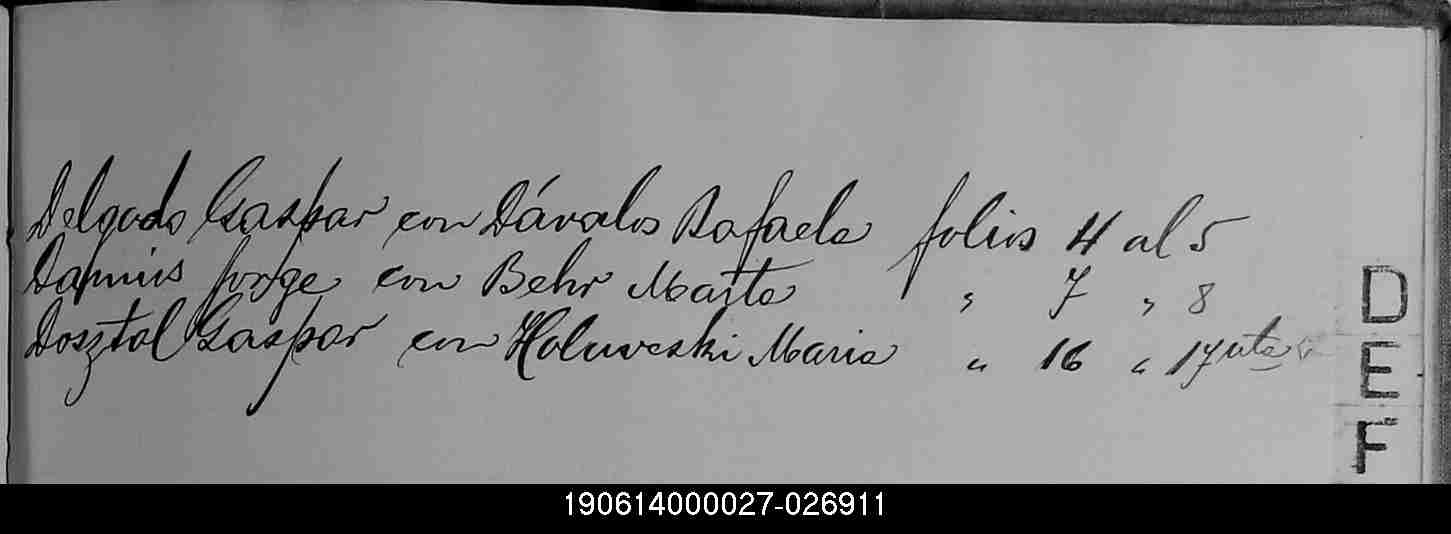 Delgado Gaspar con Dávalos Rafaela folios 4 al 5
Jorge con Behr Marta " 7 " 8
Dosztal Gaspar con Holuveski Maria " 16 " 17 vta
D
E
F
190614000027-026911